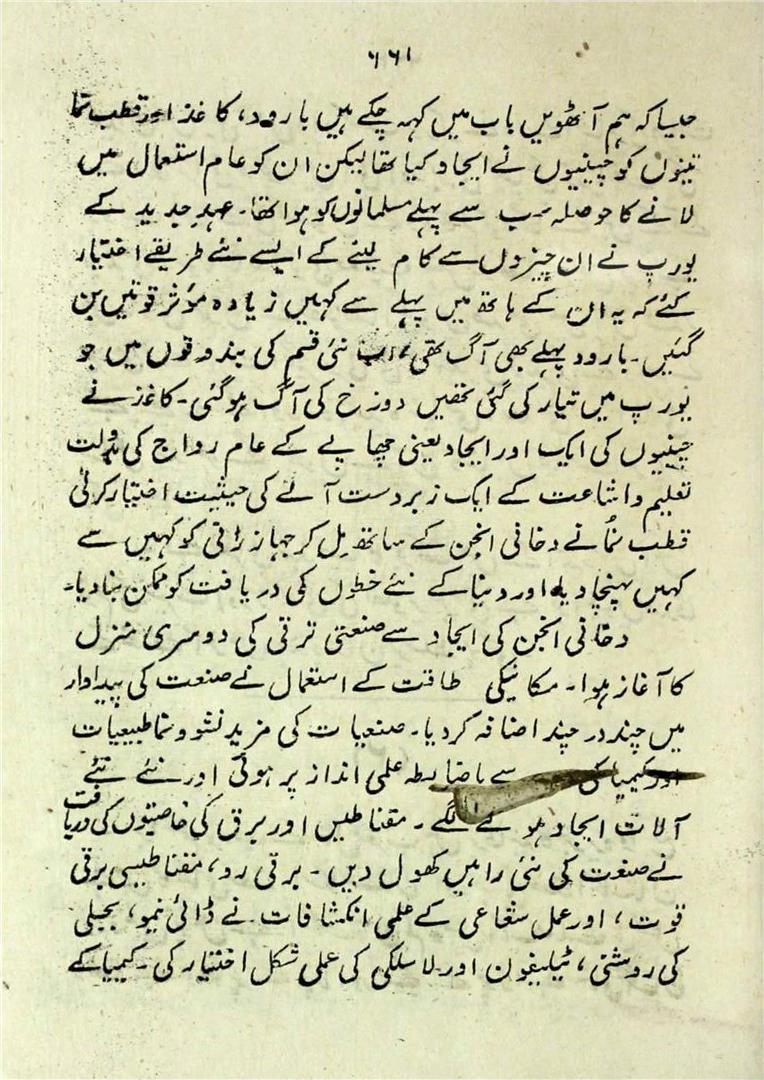 ۶۶۱
جیسا کہ ہم آٹھویں باب میں کہہ چکے ہیں بارود، کاغذ اور قطب نما
تینوں کو چینیوں نے ایجاد کیا تھا لیکن ان کو عام استعمال میں
لانے کا حوصلہ سب سے پہلے مسلمانوں کو ہوا تھا۔ عہدِ جدید کے
یورپ نے ان چیزوں سے کام لینے کے ایسے نئے طریقے اختیار
کئے کہ یہ ان کے ہاتھ میں پہلے سے کہیں زیادہ مؤثر قوتیں بن
گئیں۔ بارود پہلے بھی آگ تھی، اب نئی قسم کی بندوقوں میں جو
یورپ میں تیار کی گئی تھیں دوزخ کی آگ ہو گئی۔ کاغذ نے
چینیوں کی ایک اور ایجاد یعنی چھاپے کے عام رواج کی بدولت
تعلیم و اشاعت کے ایک زبردست آلے کی حیثیت اختیار کرلی
قطب نُما نے دخانی انجن کے ساتھ مل کر جہاز رانی کو کہیں سے
کہیں پہنچا دیا اور دنیا کے نئے خطوں کی دریافت کو ممکن بنا دیا۔
دخانی انجن کی ایجاد سے صنعتی ترقی کی دوسری منزل
کا آغاز ہوا۔ مکانیکی طاقت کے استعمال نے صنعت کی پیداوار
میں چند در چند اضافہ کر دیا۔ صنعیات کی مزید نشو و نما طبیعیات
اور کیمیا کی سے باضابطہ علمی انداز پر ہوئی اور نئے نئے
آلات ایجاد ہونے لگے۔ مقناطیس اور برق کی خاصیتوں کی دریافت
نے صنعت کی نئی راہیں کھول دیں۔ برقی رو، مقناطیسی برقی
قوت، اور عمل شعاعی کے علمی انکشافات نے ڈائی نیمو، بجلی
کی روشنی، ٹیلیفون اور لاسلکی کی عملی شکل اختیار کی۔ کیمیا کے